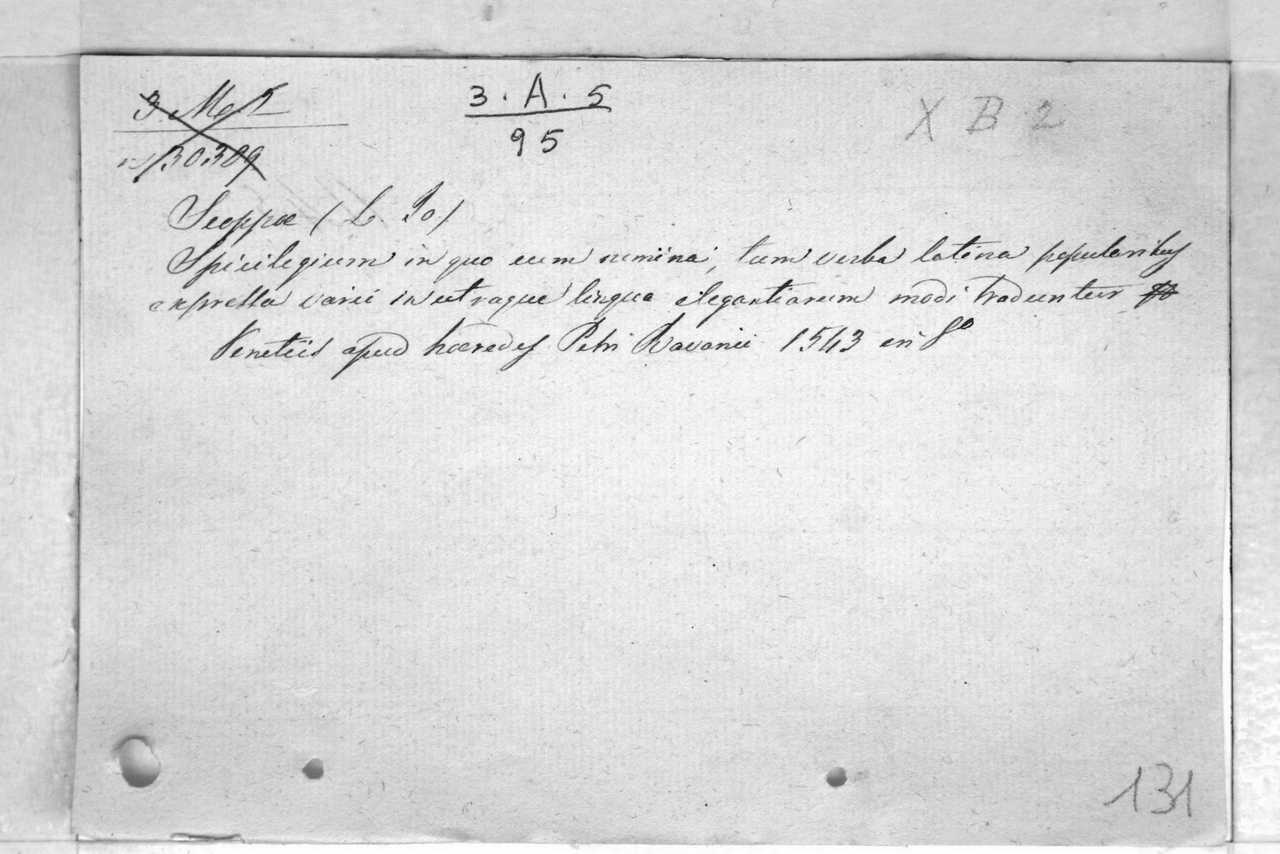 3. A. 5
95
X B 2
30309
Scoppæ ( L Jo )
Spicilegium in quo cum nomina, tum verba latina popularibus
expressa varii in utraque lingua elegantiarum modi traduntur
Venetiis apud hæredes Petri Ravanii 1543 in 8º
131